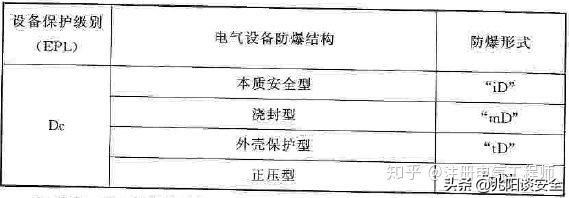 设备保护级别
（EPL）
电气设备防爆结构
防爆形式
Dc
本质安全型
“iD”
浇封型
“mD”
外壳保护型
“tD”
正压型
知乎 @注册电气工程师
头条 @兆阳谈安全